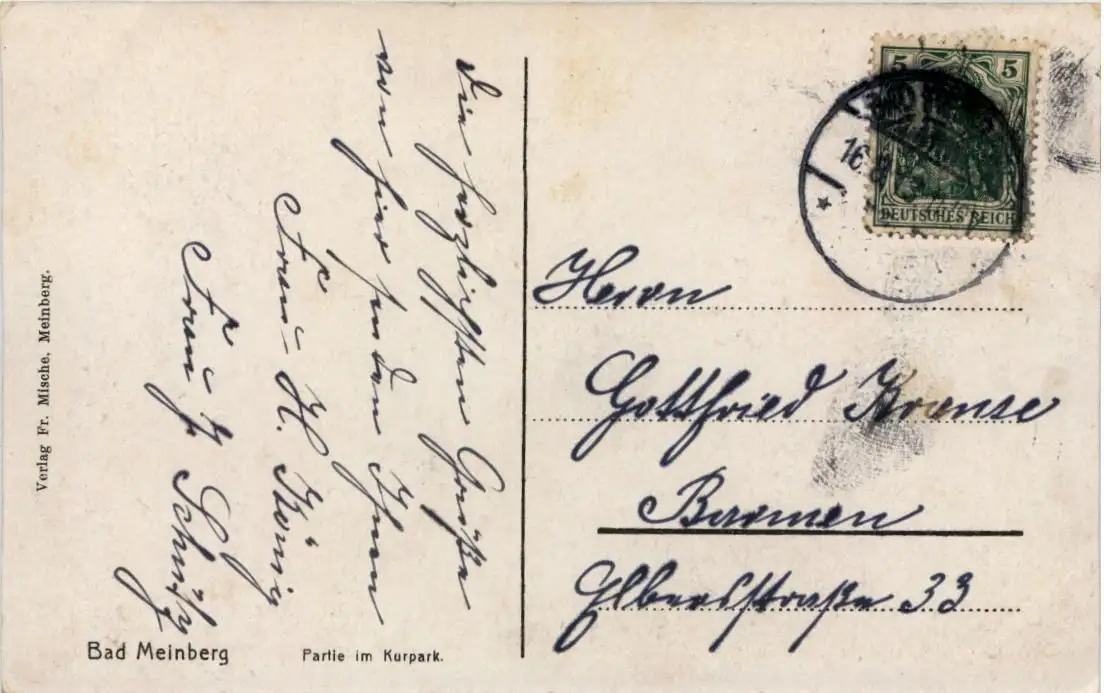 Die herzlichsten Grüße
von hier senden Ihnen
Frau H. König
Frau J. Schütz
Verlag Fr. Mische, Meinberg.
Bad Meinberg
Partie im Kurpark.
5 5
DEUTSCHES REICH
16.
Herrn
Gottfried Krause
Barmen
Elbersstraße 33